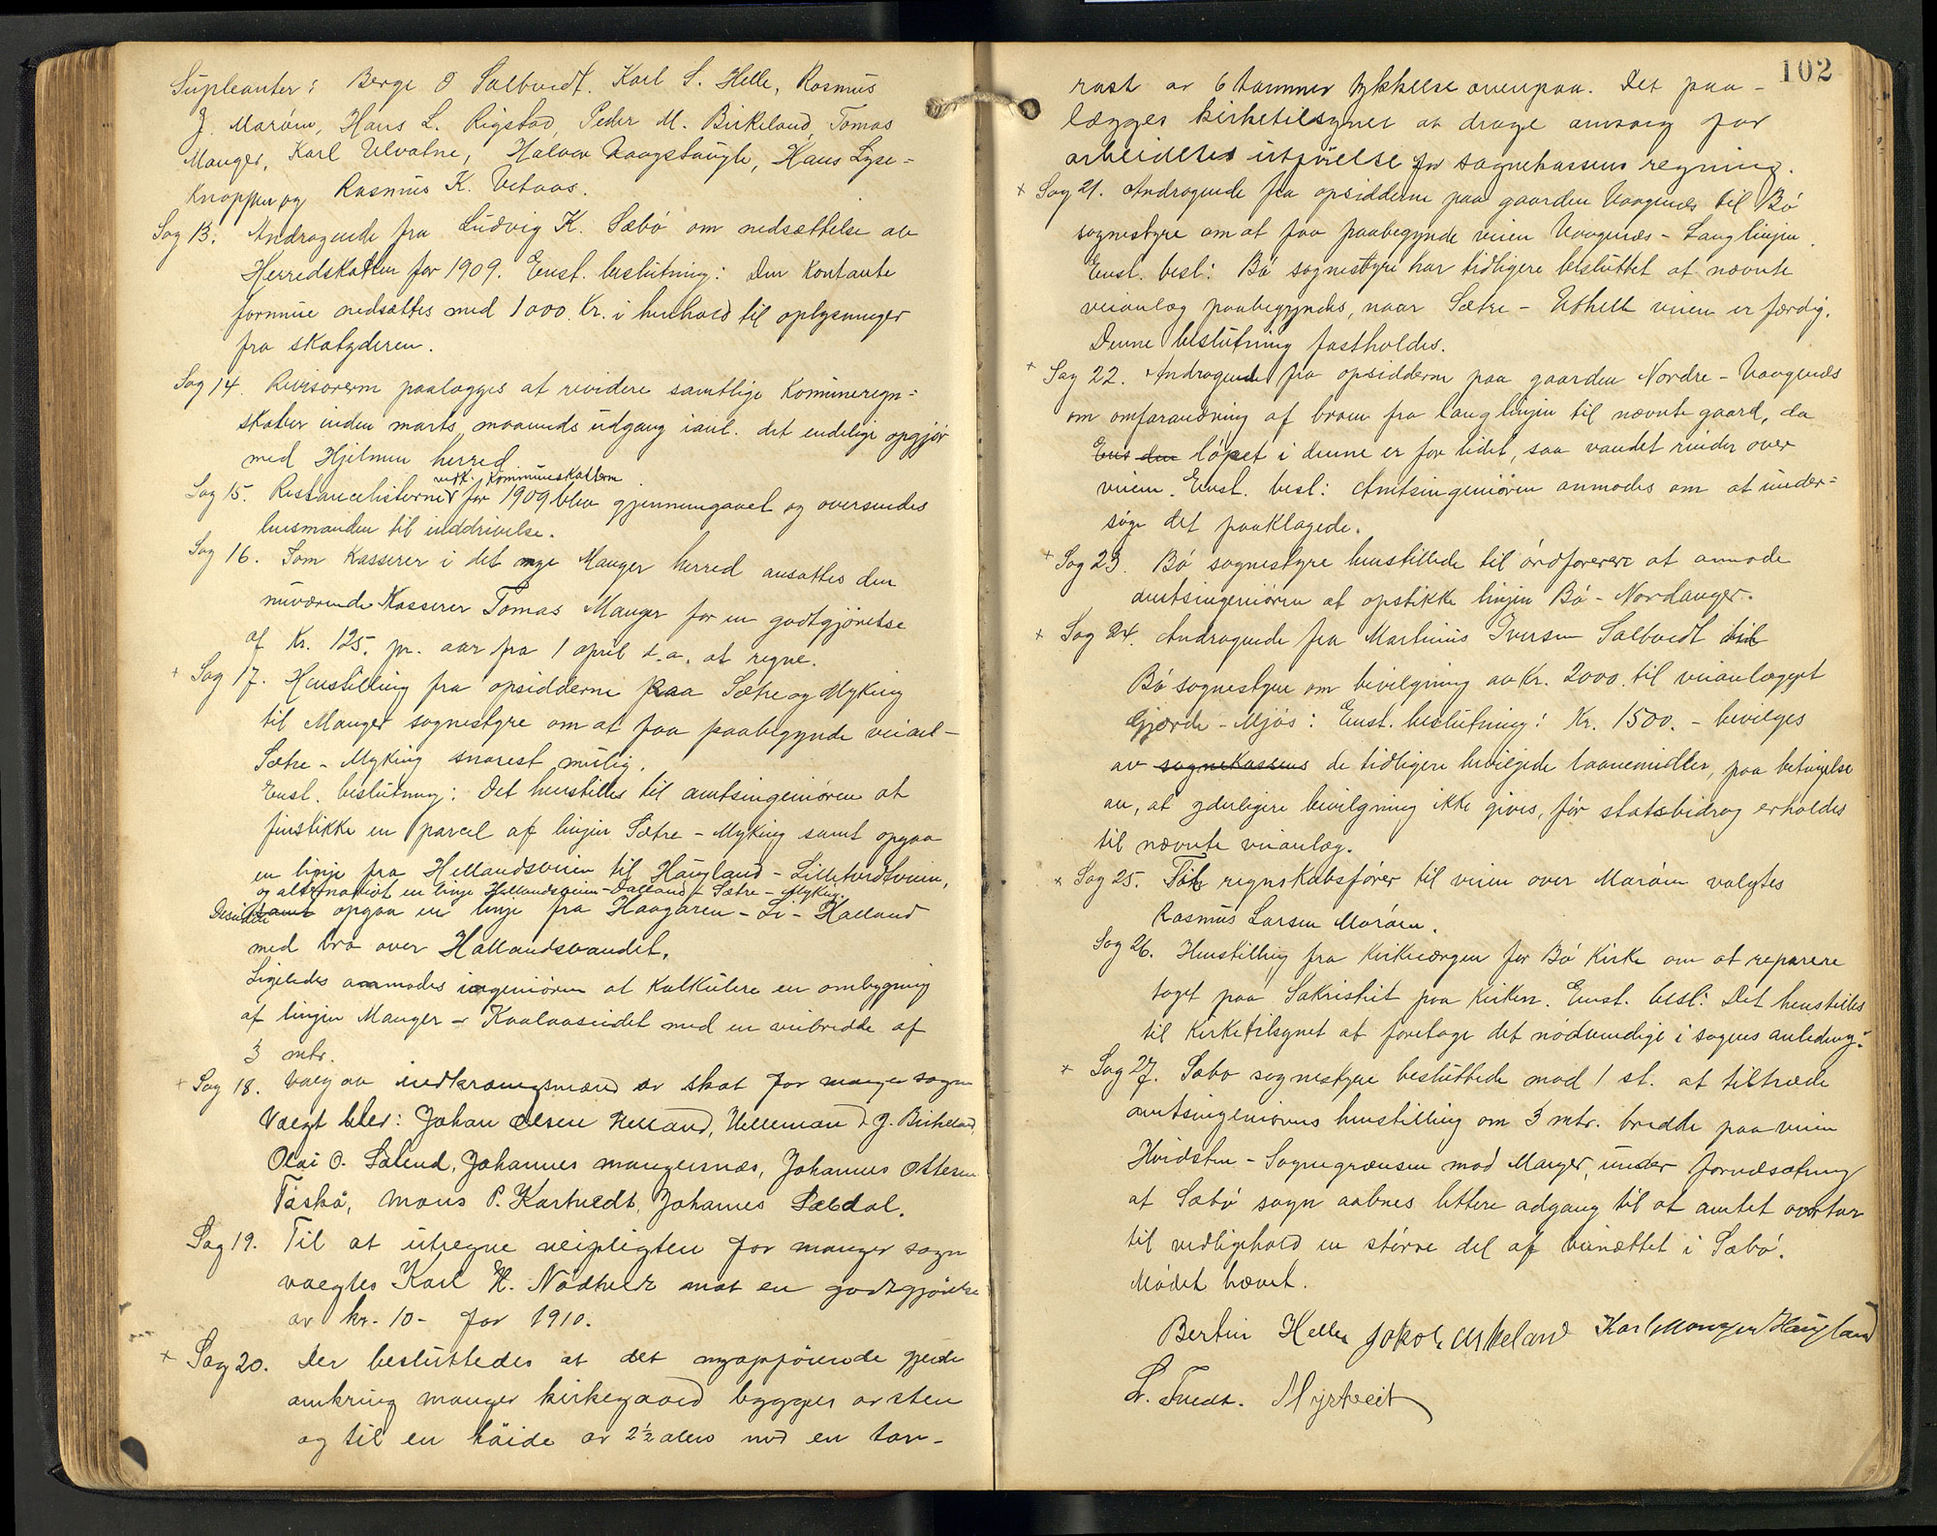 Supleanter: Berge O Solbvedt. Karl S. Helle, Rasmus
J. Marøm, Hans L. Rigstad, Peder M. Birkeland, Tomas
Manger, Karl Ulvatne, Halvor Haagstaugle, Hans Lyse-
knappen og Rasmus K. Vetaas.
Sag 13. Andragende fra Ludvig K. Sæbø om nedsættelse av
Herredskatten for 1909. Enst. beslutning: Den kontante
formue nedsættes med 1000 Kr. i henhold til oplysninger
fra skatyderen.
Sag 14. Revisorerne paalægges at revidere samtlige Kommuneregn-
skaber inden marts maaneds udgang ianl. det endelige opgjør
med Hjelmen herred
vedk. Kommuneskatten
Sag 15. Restancelisterne for 1909 blev gjennemgaaet og oversendes
lensmanden til inddrivelse.
Sag 16. Som Kasserer i det nye Manger herred ansattes den
nuværende Kasserer Tomas Manger for en godtgjørelse
af Kr. 125. pr. aar fra 1 april d.a. at regne.
+ Sag 17. Henstilling fra opsidderne paa Sætre og Myking
til Manger sognestyre om at faa paabegynde veianl-
Sætre - Myking snarest mulig.
Enst. beslutning: Det henstilles til amtsingeniøren at
finstikke en parcel af linjen Sætre - Myking samt opgaa
en linje fra Hellandsveien til Haugland - Lilletvedtveien,
og alternativt en linje Hellandsveien - Dalland - Sætre - Myking.
Desuden samt opgaa en linje fra Haagaren - Li - Halland
med bro over Hallandsvandet.
Ligeledes anmodes ingeniøren at kalkulere en ombygning
af linjen Manger - Kvalvaasundet med en veibredde af
3 mtr.
+ Sag 18. Valg av indkrævningsmænd av skat for manger sogn
Valgt blev: Johan Olsen Helland, Helleman J. Birkeland,
Olai O. Sælend, Johannes mangersnæs, Johannes Ottesen
Toska, Mons P. Kartveidt, Johannes Sæbdal.
Sag 19. Til at utregne veipligten for manger sogn
valgtes Karl H. Nødtvedt mot en godtgjørelse
av kr. 10 - for 1910.
+ Sag 20. Der besluttedes at det nyopførende gjerde
omkring manger kirkegaard bygges av sten
og til en høide av 2½ alen med en tor-
102
rast av 6 tommer tykkelse ovenpaa. Det paa-
lægges kirketilsynet at drage omsorg for
arbeidets utførelse for sognekassens regning.
+ Sag 21. Andragende fra opsidderne paa gaarden Vaagenes til Bø
sognestyre om at faa paabegynde veien Vaagenes - Langlinjen.
Enst. besl: Bø sognestyre har tidligere besluttet at nævnte
veianlæg paabegyndes, naar Sætre - Uthelle veien er færdig.
Denne beslutning fastholdes.
+ Sag 22. Andragende fra opsidderne paa gaarden Nordre - Vaagenes
om omforandring af broen fra langlinjen til nævnte gaard, da
Ens den løpet i denne er for lidet, saa vandet rinder over
veien. Enst. besl: Amtsingeniøren anmodes om at under-
søge det paaklagede.
+ Sag 23. Bø sognestyre henstillede til ordføreren at anmode
amtsingeniøren at opstikke linjen Bø - Nordanger.
+ Sag 24. Andragende fra Martinus Iversen Solbvedt til
Bø sognestyre om bevilgning av Kr. 2000. til veianlægget
Gjerde - Mjøs: Enst. beslutning: Kr. 1500. - bevilges
av sognekassens de tidligere bevilgede laanemidler, paa betingelse
av, at yderligere bevilgning ikke gives, før statsbidrag erholdes
til nævnte veianlæg.
+ Sag 25. Til regnskabsfører til veien over Marøm valgtes
Rasmus Larsen Marøm.
Sag 26. Henstilling fra kirkeværgen for Bø Kirke om at reparere
taget paa Sakristiet paa kirken. Enst. besl: Det henstilles
til Kirketilsynet at foretage det nødvendige i sagens anledning.
+ Sag 27. Sæbø sognestyre besluttede mod 1 st. at tiltræde
amtsingeniørens henstilling om 3 mtr. bredde paa veien
Hvidsten - Sognegrænsen mod Manger, under forudsætning
at Sæbø sogn aabnes lettere adgang til at amtet overtar
til vedligehold en større del af veinættet i Sæbø.
Mødet hævet.
Bertin Helle Jakob Askeland Karl Manger Haugland
L. Tvedt. Myrtveit